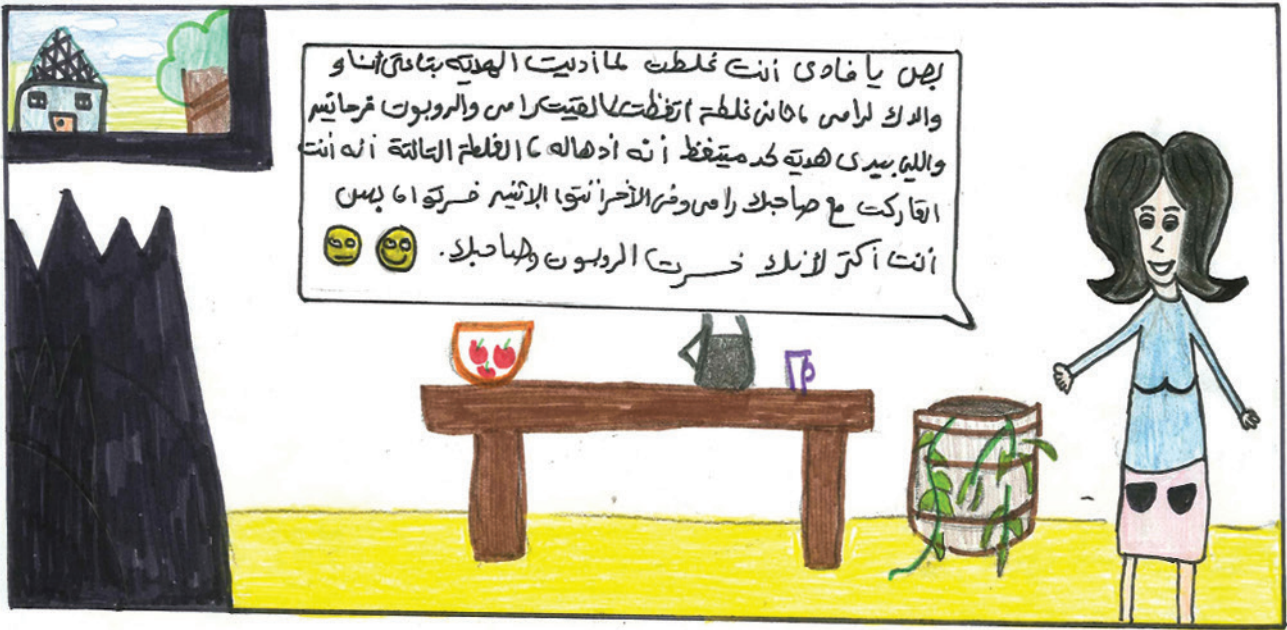 بص يا فادى أنت غلطت لما أديت الهدية بتاعتى أنا و
والدك لرامى ، تانى غلطة اتغظت لما لقيت رامى والروبوت فرحانين
واللى بيدى هدية لحد ميتغظ أنه أدهاله ، الغلطة التالتة أنه أنت
اتعاركت مع صاحبك رامى وفى الأخر أنتوا الإتنين خسرتوا ، بس
أنت أكتر لأنك خسرت الروبوت وصاحبك.